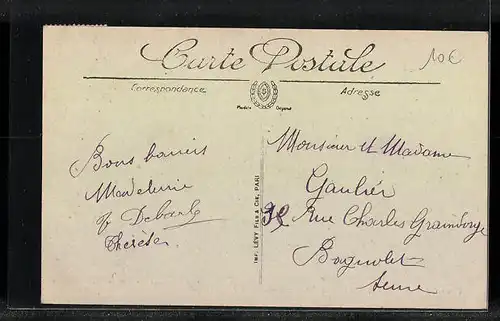 Carte Postale
10€
Correspondance
Adresse
Modèle Déposé
Bons baisers
Madeleine
Debarle
Thérèse
IMP. LÉVY FILS & CIE, PARI
Monsieur et Madame
Gaulier
38 Rue Charles Graindorge
Bagnolet
Seine